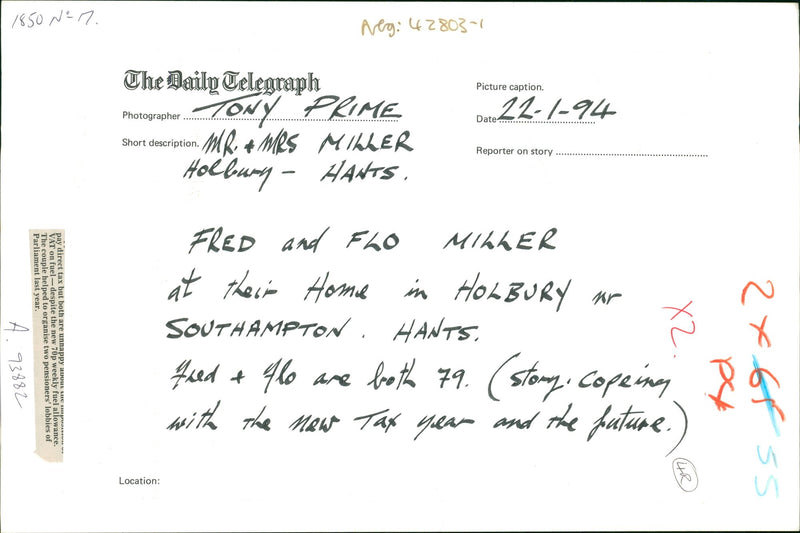 1850 No 17.
Neg: 42803-1
The Daily Telegraph
Photographer TONY PRIME
Short description. MR. + MRS MILLER
Holbury - HANTS.
Picture caption.
Date 22-1-94
Reporter on story
FRED and FLO MILLER
at their Home in HOLBURY nr
SOUTHAMPTON. HANTS.
Fred + Flo are both 79. (story. Copeing
with the new Tax year and the future.)
pay direct tax but both are unhappy about the
VAT on fuel — despite the new 70p weekly fuel allowance.
The couple helped to organise two pensioners' lobbies of
Parliament last year.
A. 93882
X2.
2 x 61
55
Location: